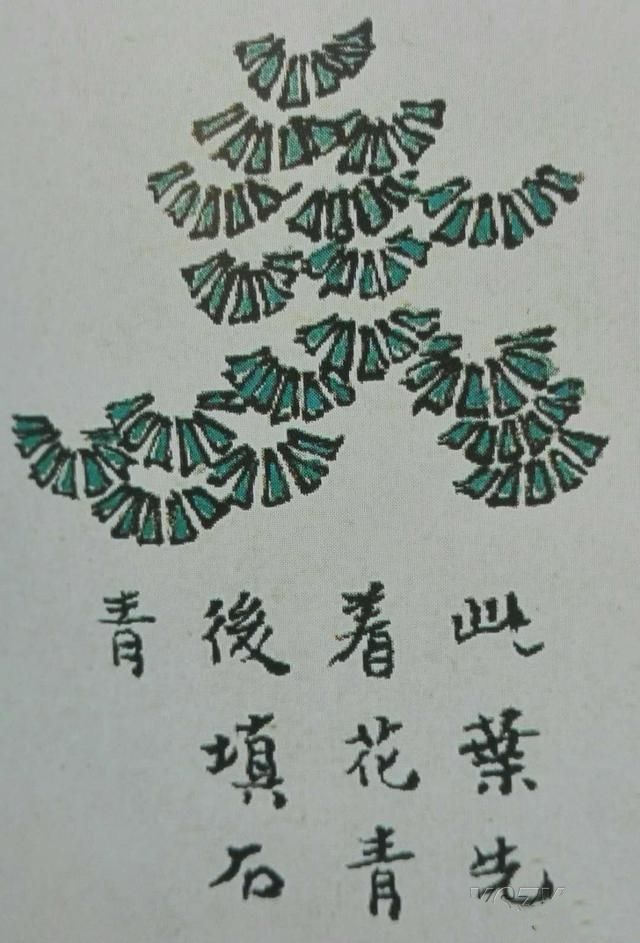 此葉先
着花青
後填石
青
VQZV